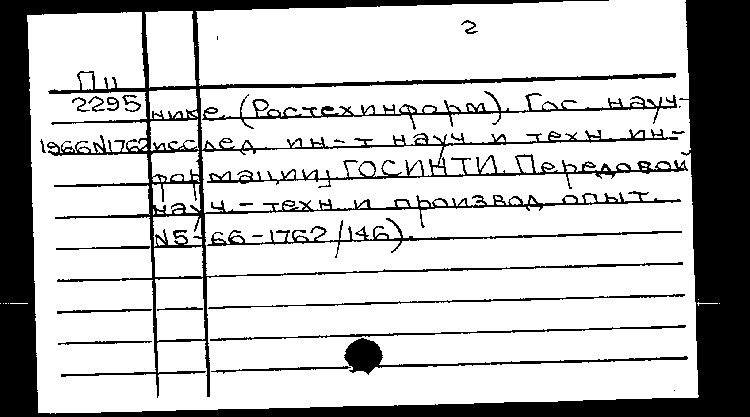 2
Пи
2295 нике (Ростехинформ). Гос. науч-
1966N1762 исслед ин-т науч и техн. ин-
формации ГОСИНТИ. Передовой
науч.-техн и производ опыт.
N5-66-1762/146).